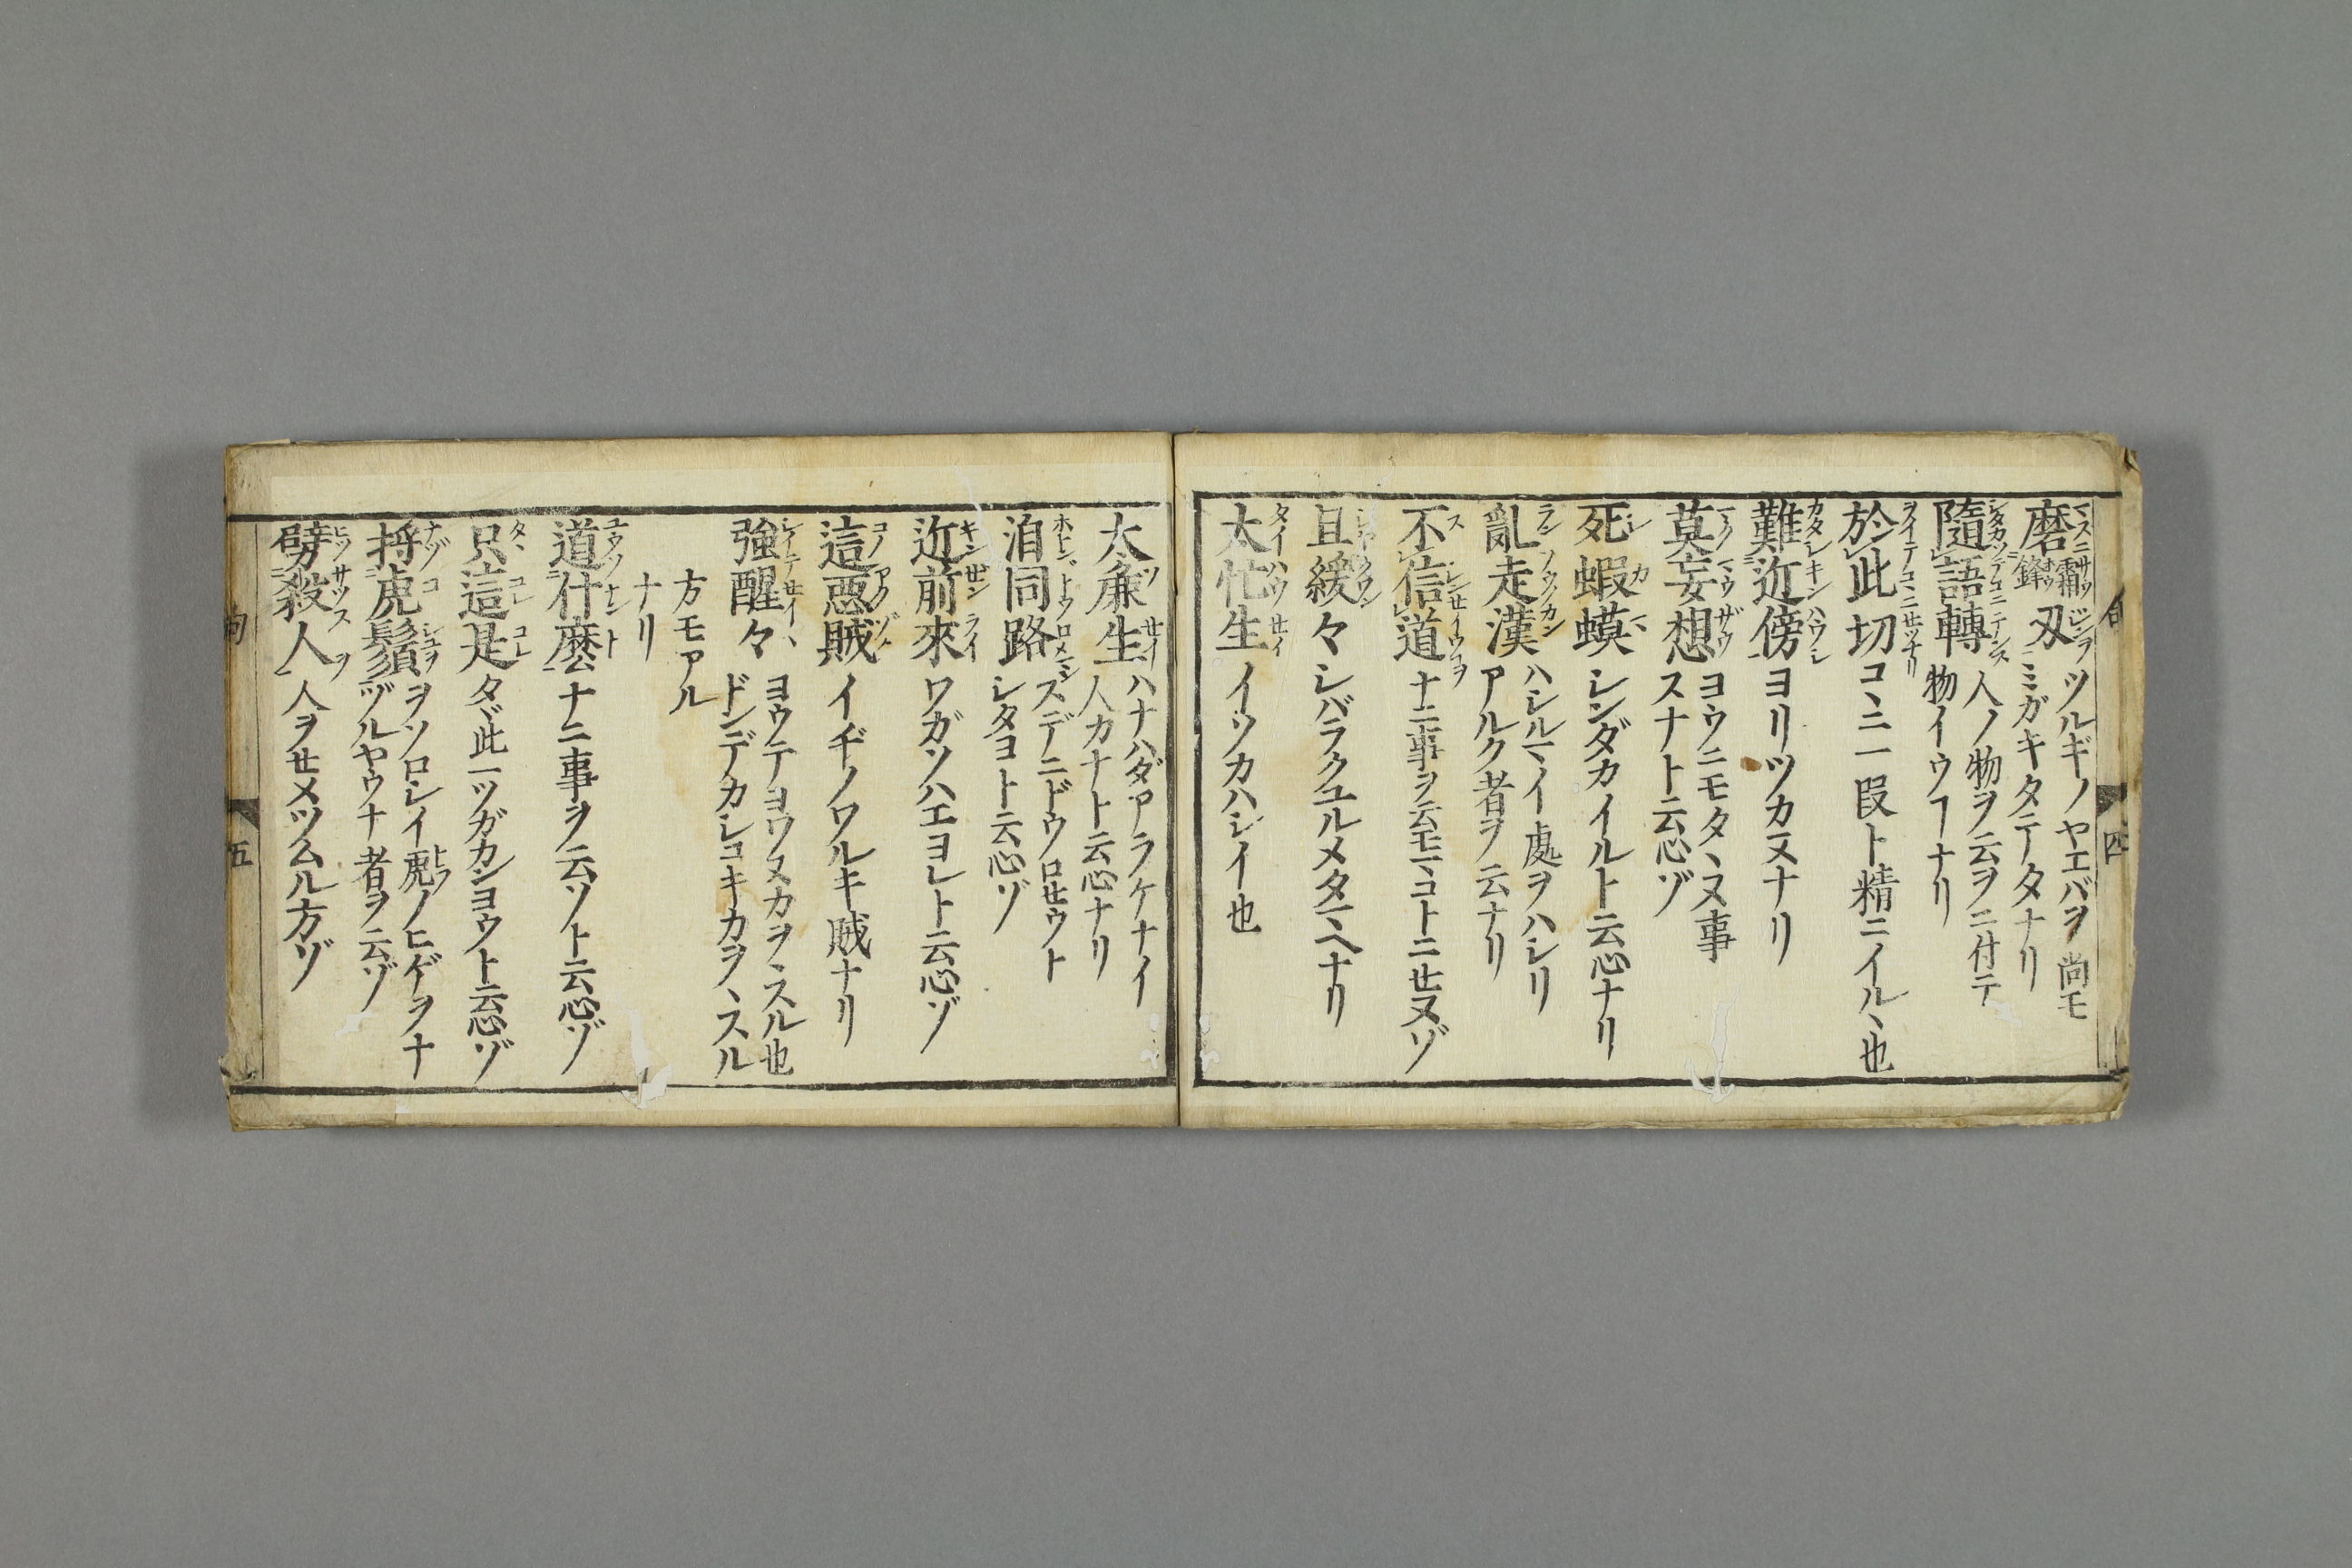 磨霜鋒刃 ツルギノヤエバヲ尚モ
ミガキタテタナリ
隨語轉 人ノ物ヲ云ヲニ付テ
物イウヿナリ
於此切 コヽニ一段ト精ニイルヽ也
難近傍 ヨリツカヌナリ
莫妄想 ヨウニモタヽヌ事
スナト云心ゾ
死蝦蟆 シンダカイルト云心ナリ
亂走漢 ハシルマイ處ヲハシリ
アルク者ヲ云ナリ
不信道 ナニ事ヲ云モマコトニセヌゾ
且緩々 シバラクユルメタマヘナリ
太忙生 イソカハシイ也
太麁生 ハナハダアラケナイ
人カナト云心ナリ
洎同路 スデニドウロセウト
シタヨト云心ゾ
近前來 ワガソハエヨレト云心ゾ
這惡賊 イヂノワルキ賊ナリ
強醒々 ヨウテヨワヌカヲヽスル也
ドンデカシコキカヲヽスル
方モアル
ナリ
道什麽 ナニ事ヲ云ソト云心ゾ
只這是 タヾ此一ツガカンヨウト云心ゾ
捋虎鬚 ヲソロシイ虎ノヒゲヲナ
ヅルヤウナ者ヲ云ゾ
劈殺人 人ヲセメツムル方ゾ
四
句
五